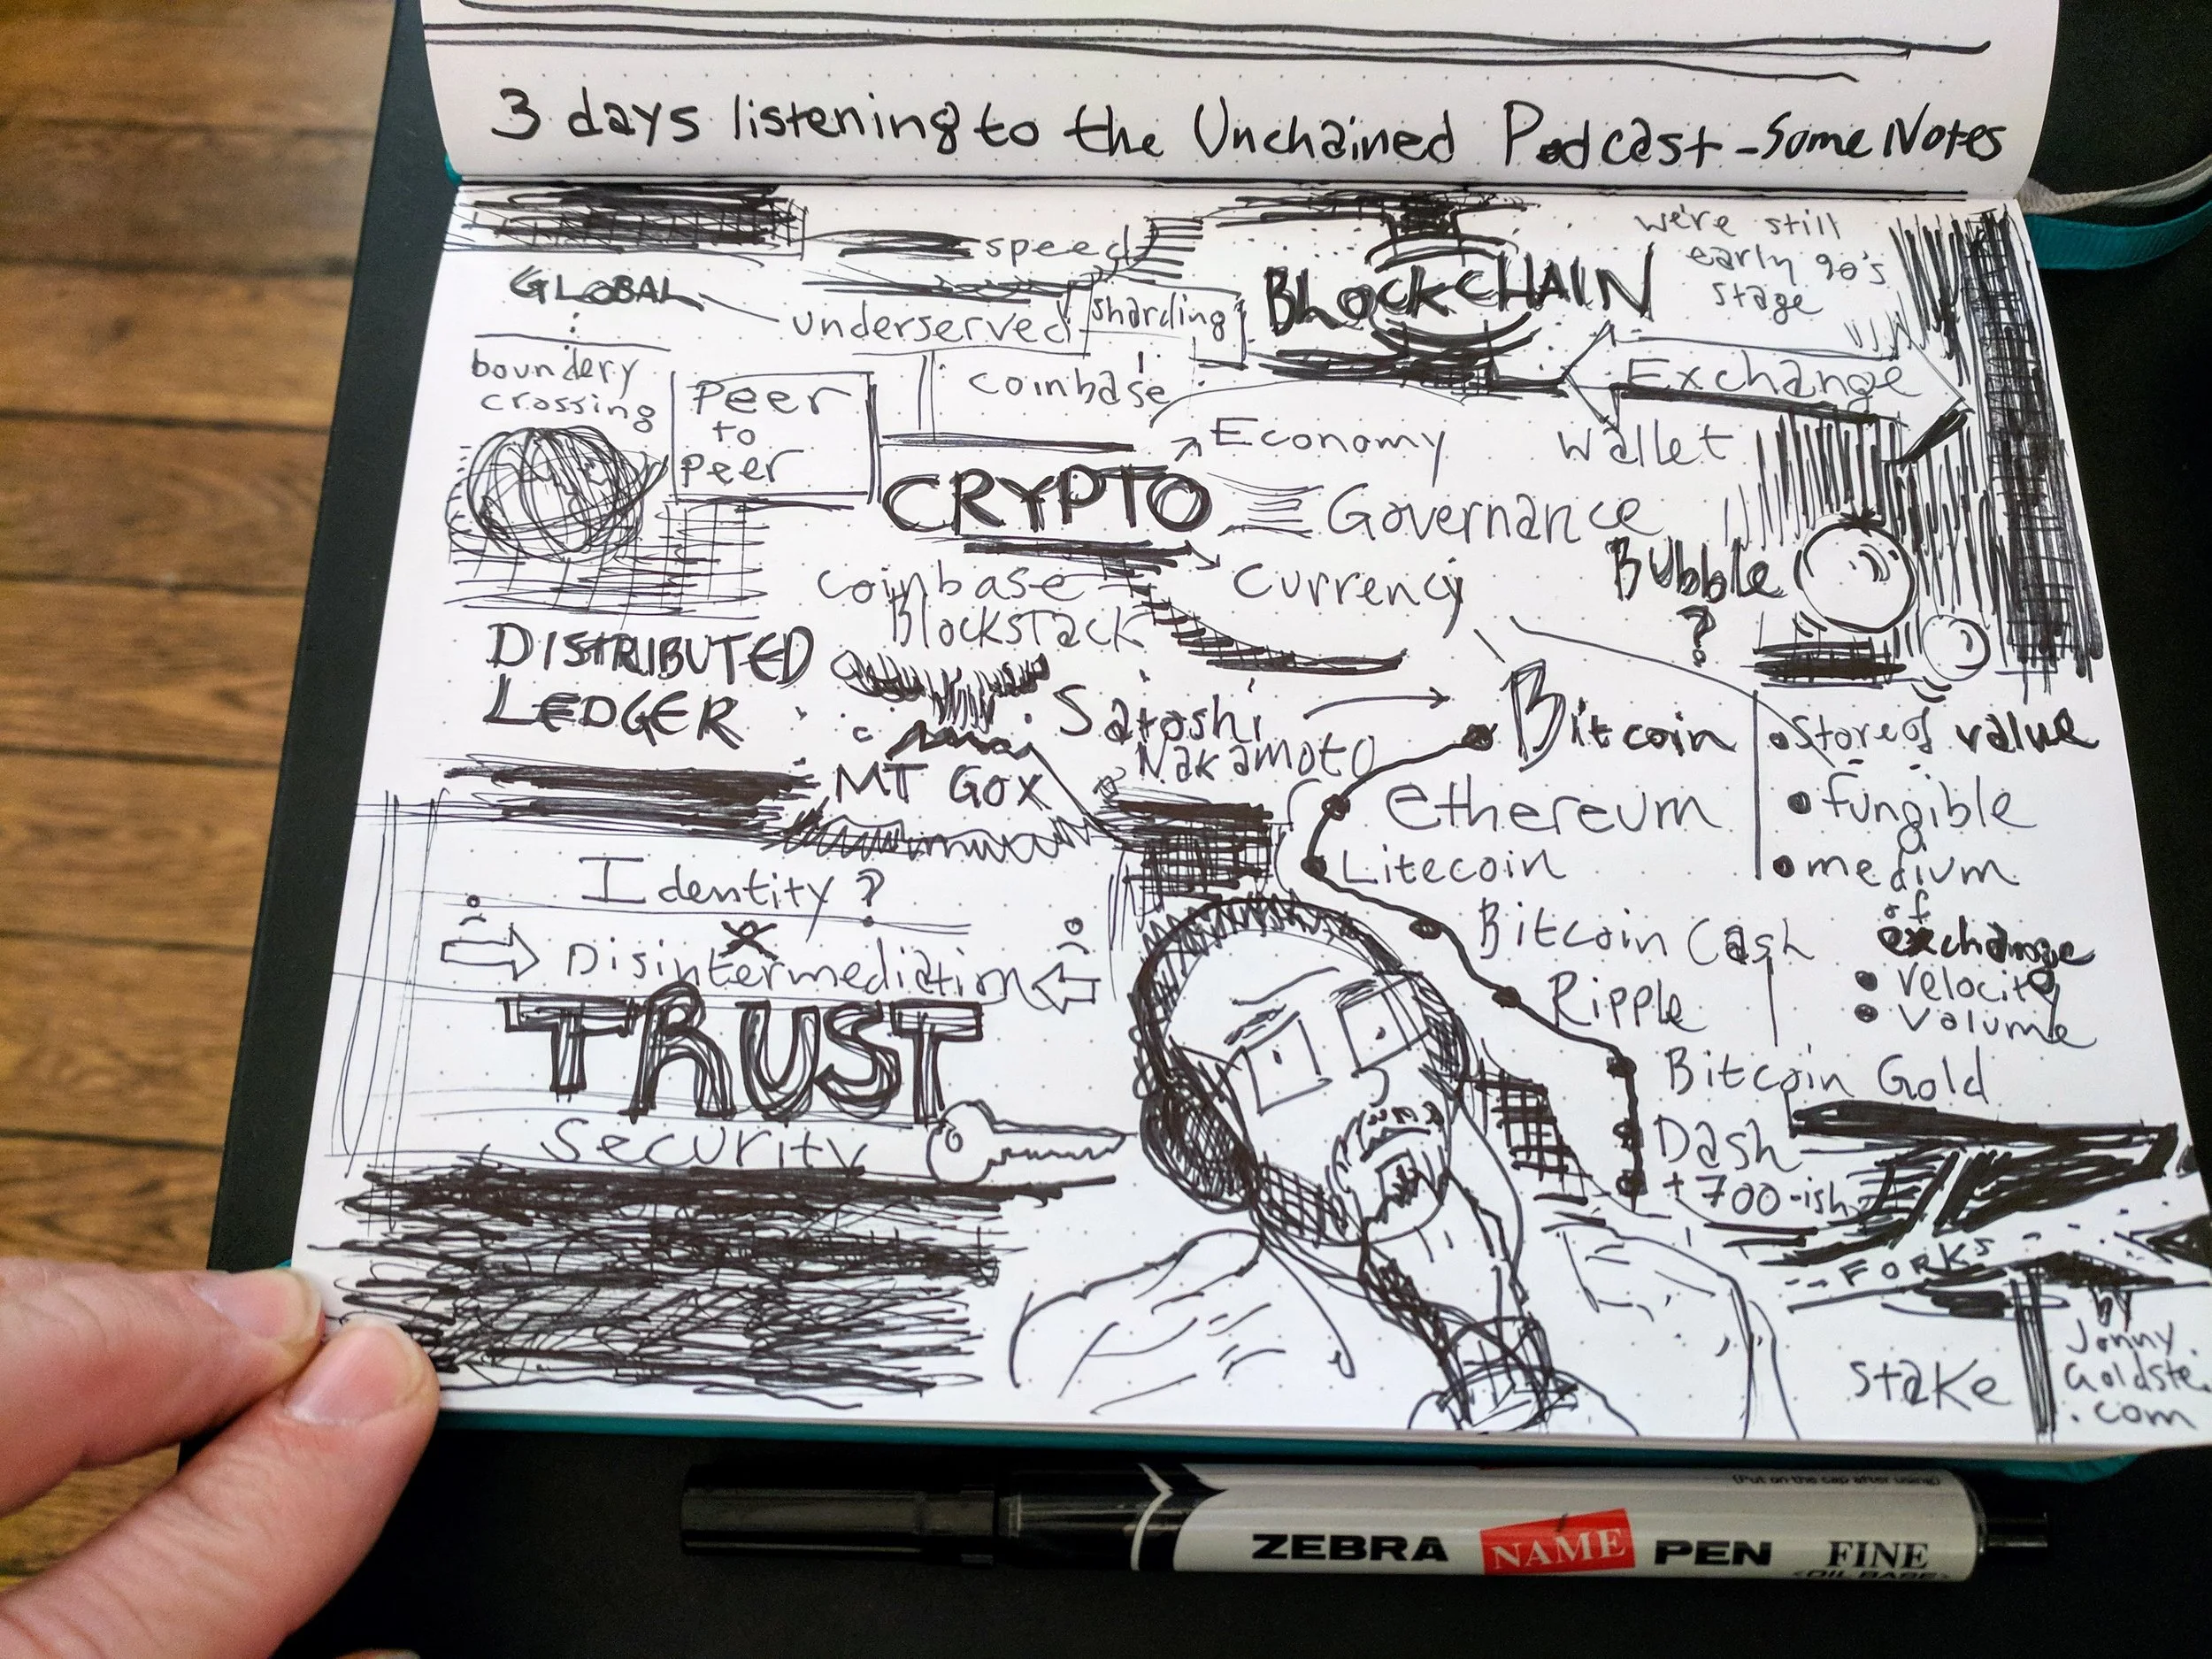 3 days listening to the Unchained Podcast - Some Notes
speed
GLOBAL
underserved
sharding
BLOCKCHAIN
we're still
early 90's
stage
boundery
crossing
Peer
to
peer
coinbase
Exchange
Economy
Wallet
CRYPTO
Governance
Currency
Bubble
?
coinbase
Blockstack
DISTRIBUTED
LEDGER
Satoshi
Nakamoto
MT GOX
Bitcoin
Ethereum
Litecoin
Bitcoin Cash
Ripple
Bitcoin Gold
Dash
+ 700-ish
• Store of value
• fungible
• medium
of
exchange
• velocity
• Volume
Identity?
Disintermediation
TRUST
Security
FORKS
stake
by
Jonny
Goldste.
.com
(Put on the cap after using)
ZEBRA NAME PEN FINE
<OIL BASE>